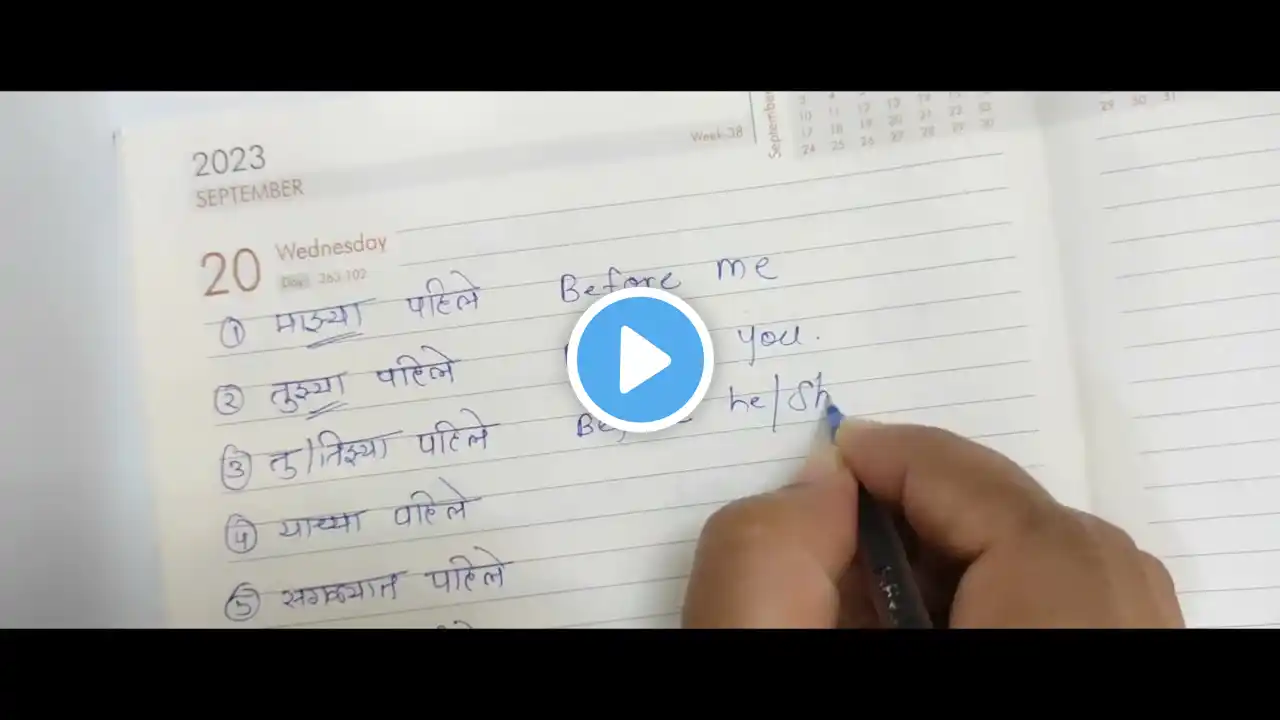 2023
SEPTEMBER
Week 38
September
10 11 12 13 14 15 16
17 18 19 20 21 22 23
24 25 26 27 28 29 30
29 30 31
20 Wednesday
Day 263-102
① माझ्या पहिले Before me
② तुझ्या पहिले you.
③ तु/तिझ्या पहिले Before he/Sh
④ याच्या पहिले
⑤ सगळ्यात पहिले